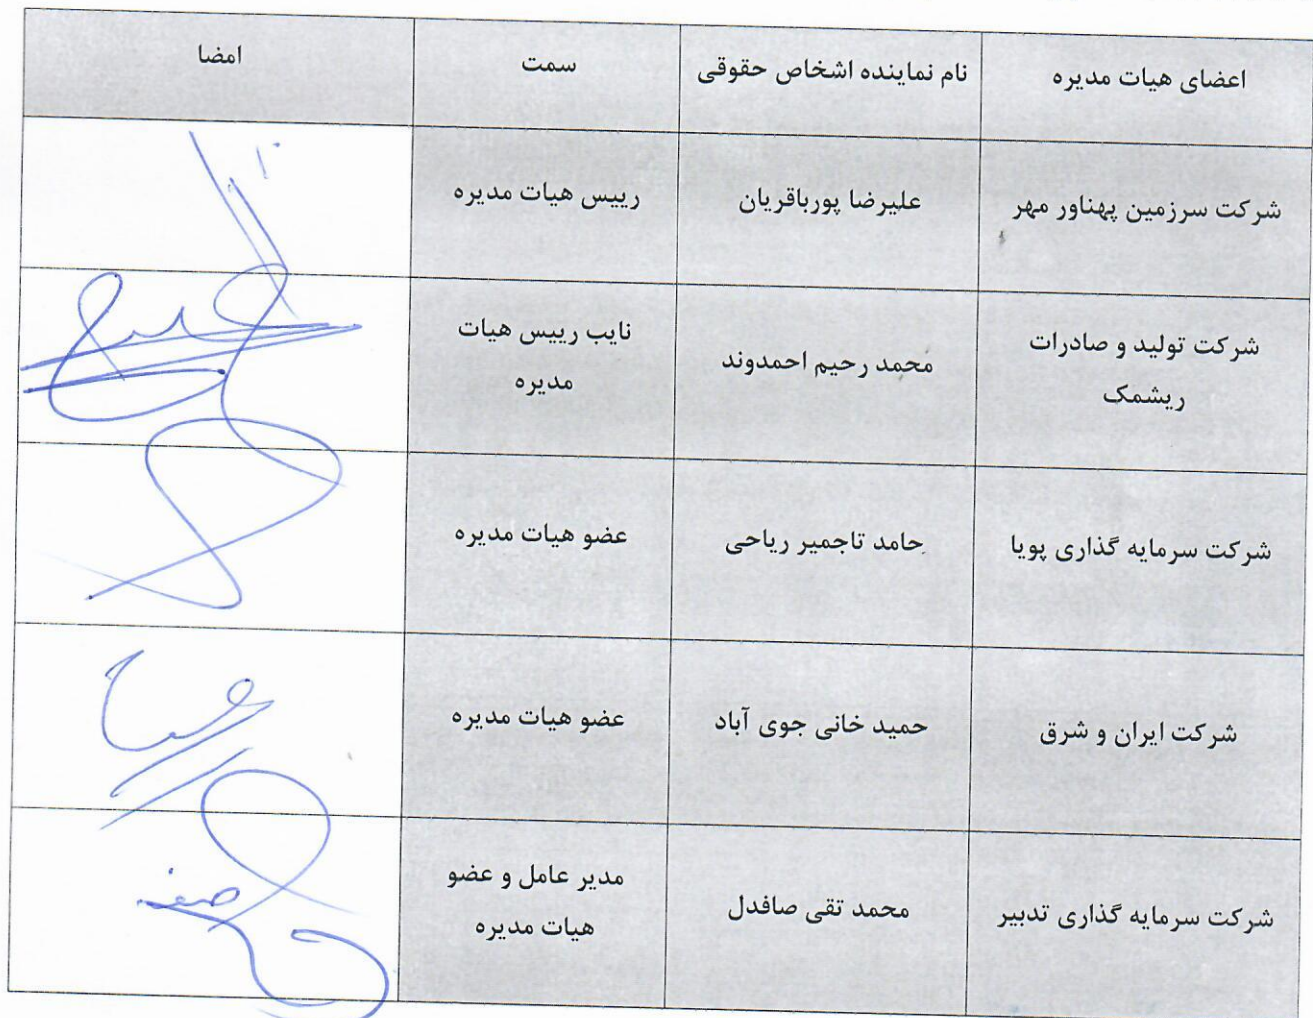 اعضای هیات مدیره	نام نماینده اشخاص حقوقی	سمت	امضا
شرکت سرزمین پهناور مهر	علیرضا پورباقریان	رییس هیات مدیره
شرکت تولید و صادرات
ریشمک	محمد رحیم احمدوند	نایب رییس هیات
مدیره
شرکت سرمایه گذاری پویا	حامد تاجمیر ریاحی	عضو هیات مدیره
شرکت ایران و شرق	حمید خانی جوی آباد	عضو هیات مدیره
شرکت سرمایه گذاری تدبیر	محمد تقی صافدل	مدیر عامل و عضو
هیات مدیره